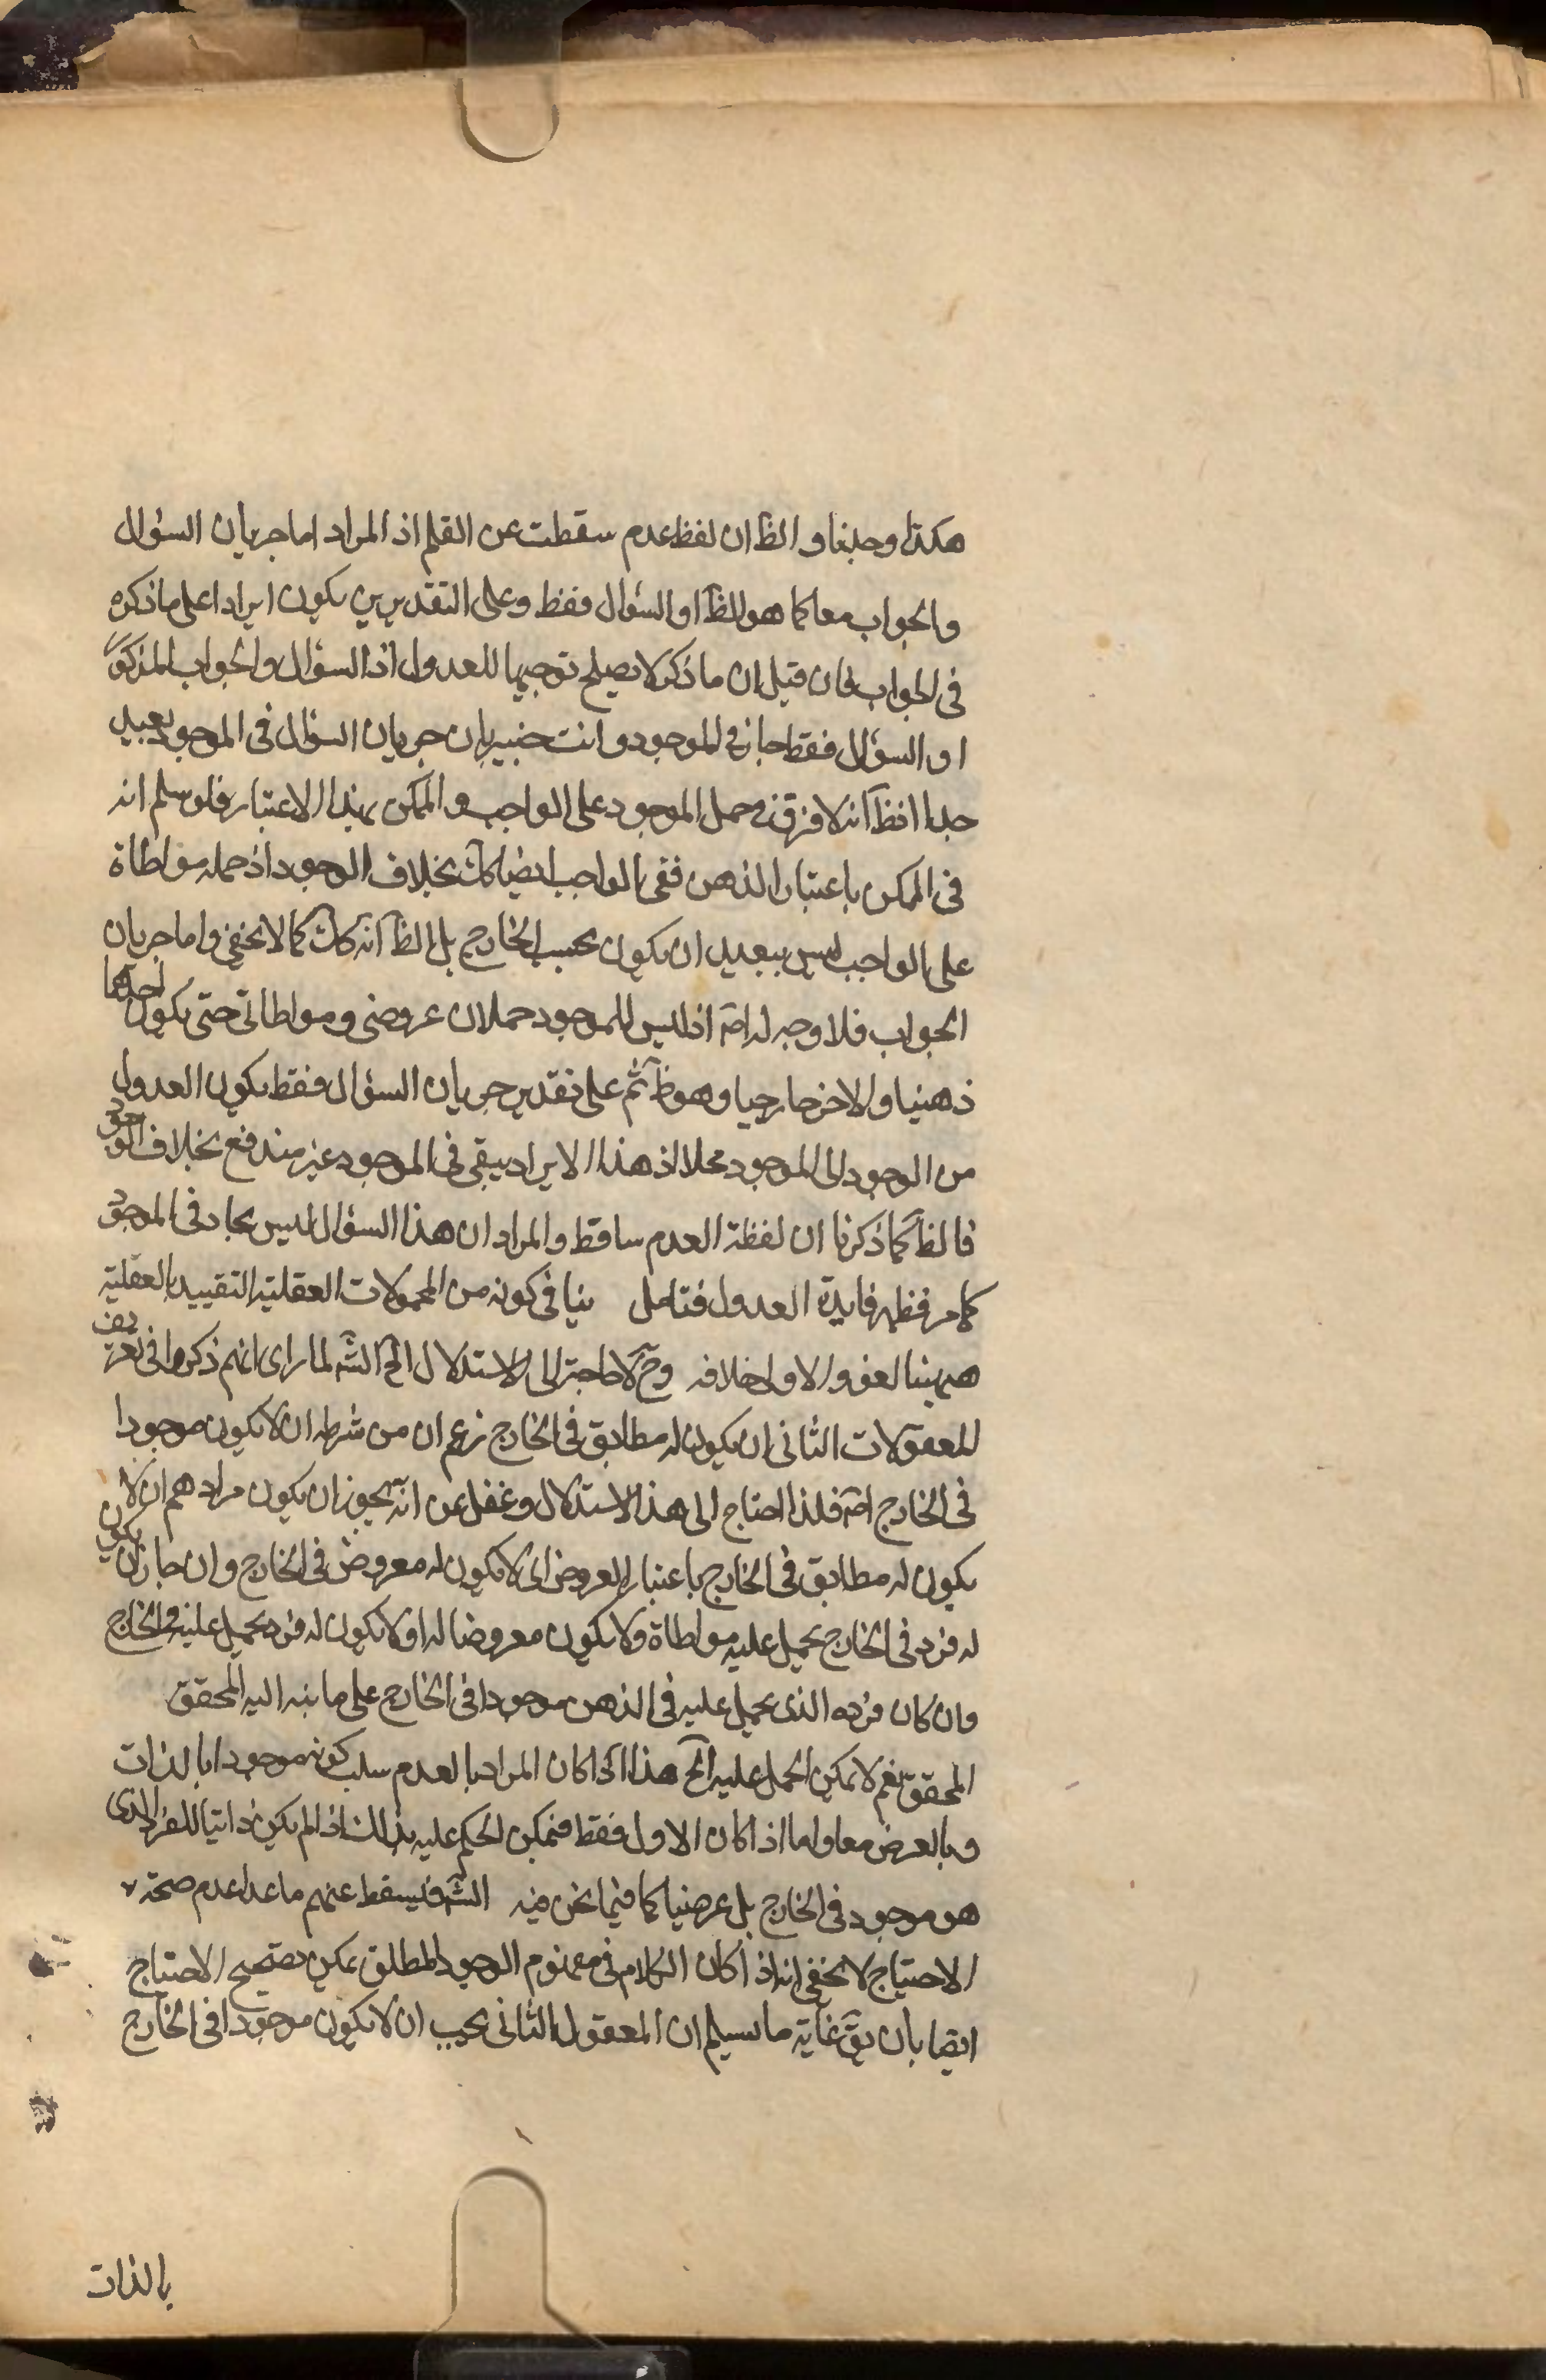 هكذا وجدنا و الظ ان لفظ عدم سقطت عن القلم اذ المراد اما جريان السؤال
والجواب معا كما هو الظ او السؤال فقط وعلى التقديرين يكون ايرادا على ما ذكره
فى الجواب فان قيل ان ما ذكر لا يصلح توجيها للعدول اذ السؤال والجواب المذكور
او السؤال فقط جاز فى الموجود وانت خبير بان جريان السؤال فى الموجود بعيد
جدا اذ ظ انه لا فرق فى حمل الموجود على الواجب والممكن بهذا الاعتبار فلو سلم انه
فى الممكن باعتبار الذهن ففى الواجب ايضا كك بخلاف الوجود اذ حمله مواطاة
على الواجب ليس ببعيد ان يكون بحسب الخارج بل الظ انه كك كما لا يخفى واما جريان
الجواب فلا وجه له اصَ اذ ليس للموجود حملان عروضى ومواطاتى حتى يكون احدهما
ذهنيا والاخر خارجيا وهو ظ ثم على تقدير جريان السؤال فقط يكون العدول
من الوجود الى الموجود مخلا اذ هذا الايراد يبقى فى الموجود غير مندفع بخلاف الوجود
فالظ كما ذكرنا ان لفظة العدم ساقط والمراد ان هذا السؤال ليس بجار فى الموجود
كما مر فظهر فايدة العدول فتامل ينافى كونه من المحمولات العقلية التقييد بالعقلية
ههنا لغو والاولى خلافه وحَ لا حاجة الى الاستدلال الخ الشَ لما راى انهم ذكروا فى تعريف
للمعقولات الثانى ان يكون له مطابق فى الخارج زعم ان من شرطه ان لا يكون موجودا
فى الخارج اصَ فلذا احتاج الى هذا الاستدلال وغفل عن انه يجوز ان يكون مرادهم ان لا
يكون له مطابق فى الخارج باعتبار العروض اى لا يكون له معروض فى الخارج وان جاز ان يكون
له فرد فى الخارج يحمل عليه مواطاة ولا يكون معروضا له او لا يكون له فرد يحمل عليه فى الخارج
وان كان فرده الذى يحمل عليه فى الذهن موجودا فى الخارج على ما نبه اليه المحقق
المحقق نعم لا يمكن الحمل عليه الخ هذا اذا كان المراد بالعدم سلب كونه موجودا بالذات
وبالعرض معا واما اذا كان الاول فقط فيمكن الحكم عليه بذلك اذا لم يكن ذاتيا للفرد الذى
هو موجود فى الخارج بل عرضيا كما فيما نحن فيه الشَ فيسقط عنهم ما عدا عدم صحة
الاحتياج لا يخفى انه اذا كان الكلام فى مفهوم الوجود المطلق يمكن تصحيح الاحتياج
ايضا بان يقَ غاية ما يسلم ان المعقول الثانى يجب ان لا يكون موجودا فى الخارج
بالذات